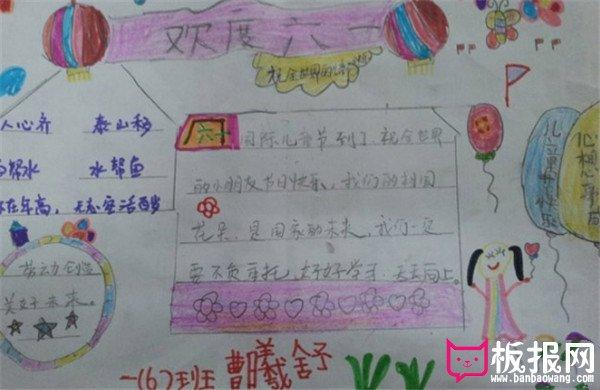 欢度六一
祝全世界
人心齐 泰山移
水 水帮鱼
在年高，无志空活百岁
劳动创造
美好未来。
六一国际儿童节到了，祝全世界
的小朋友节日快乐，我们的祖国
花朵，是国家的未来，我们一定
要不负重托，好好学习，天天向上。
儿童节快乐
心想事成
一(6)班 曹曦
板报网
www.banbaowang.com